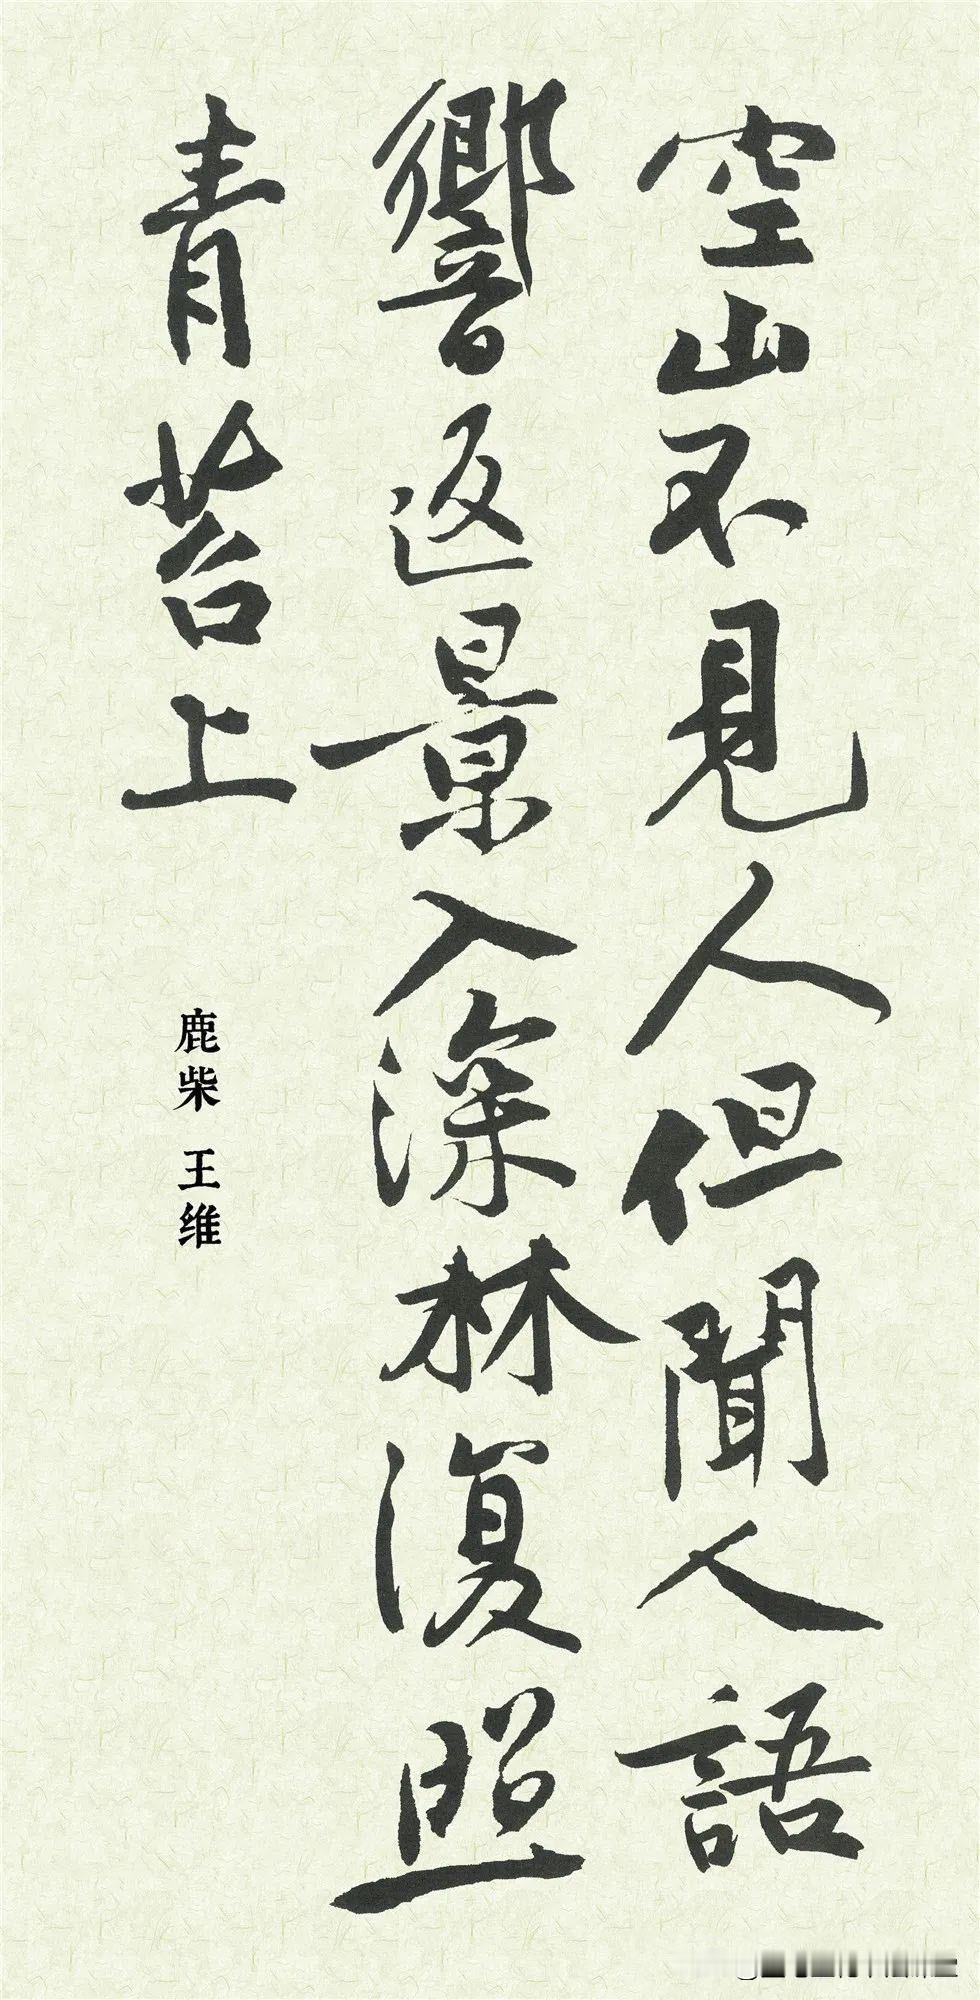 空山不見人但聞人語
響返景入深林復照
青苔上
鹿柴 王维